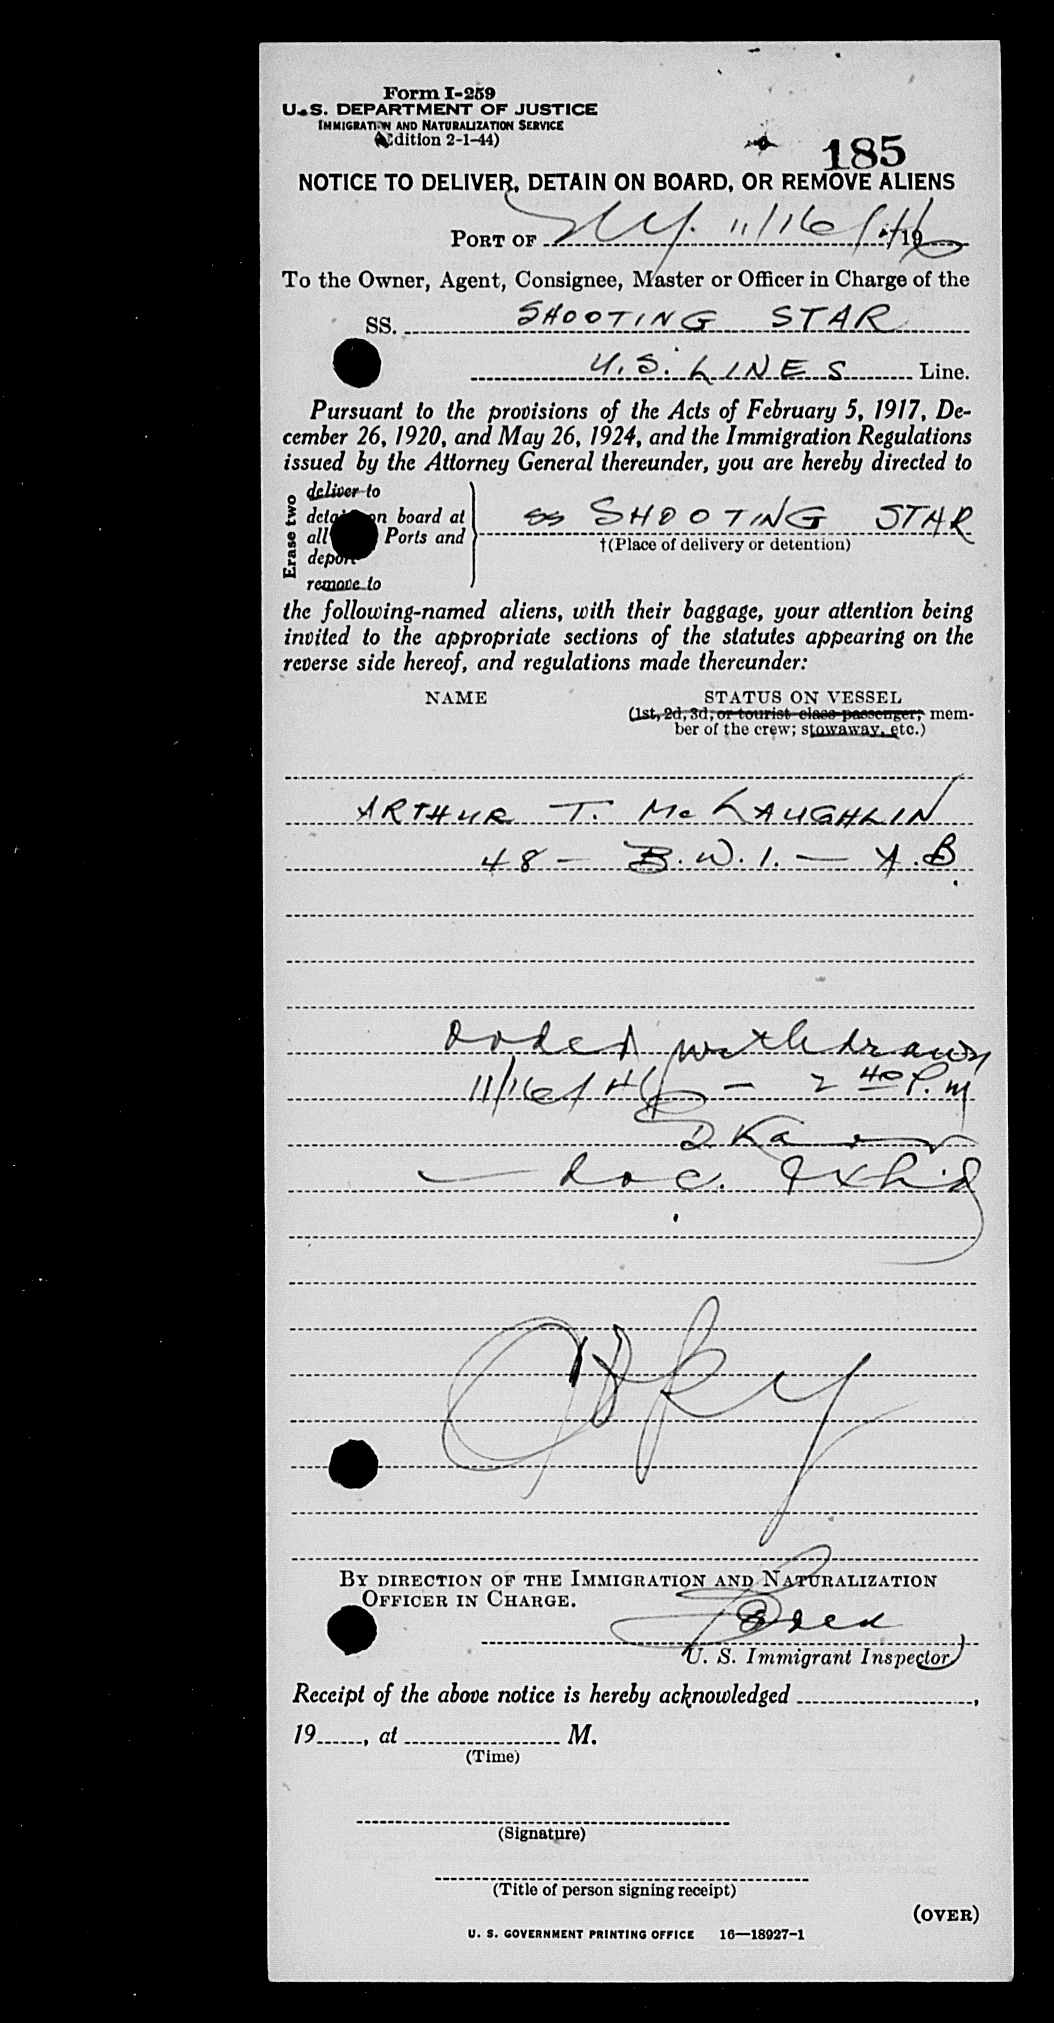 Form I-259
U.S. DEPARTMENT OF JUSTICE
IMMIGRATION AND NATURALIZATION SERVICE
(Edition 2-1-44)
185
NOTICE TO DELIVER, DETAIN ON BOARD, OR REMOVE ALIENS
PORT OF NY. 11/16/46 19
To the Owner, Agent, Consignee, Master or Officer in Charge of the
SS. SHOOTING STAR
U.S. LINES Line.
Pursuant to the provisions of the Acts of February 5, 1917, De-
cember 26, 1920, and May 26, 1924, and the Immigration Regulations
issued by the Attorney General thereunder, you are hereby directed to
Erase two
deliver to
detain on board at
all Ports and
deport
remove to
SS SHOOTING STAR
†(Place of delivery or detention)
the following-named aliens, with their baggage, your attention being
invited to the appropriate sections of the statutes appearing on the
reverse side hereof, and regulations made thereunder:
NAME STATUS ON VESSEL
(1st, 2d, 3d, or tourist class passenger; mem-
ber of the crew; stowaway, etc.)
ARTHUR T. McLAUGHLIN
48 - B.W.I. - A.B.
Order withdrawn
11/16/46 - 2 40 P.M
doc. Exh'd
Copy
BY DIRECTION OF THE IMMIGRATION AND NATURALIZATION
OFFICER IN CHARGE.
U. S. Immigrant Inspector
Receipt of the above notice is hereby acknowledged ,
19 , at M.
(Time)
(Signature)
(Title of person signing receipt)
(OVER)
U. S. GOVERNMENT PRINTING OFFICE 16—18927-1